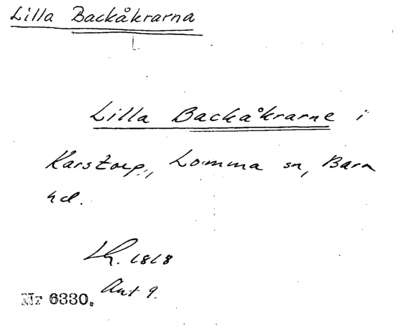 Lilla Backåkrarna
Lilla Backåkrarne i
Karstorp., Lomma sn, Bara
hd.
Lh. 1818
Akt 9.
Nr 6330.